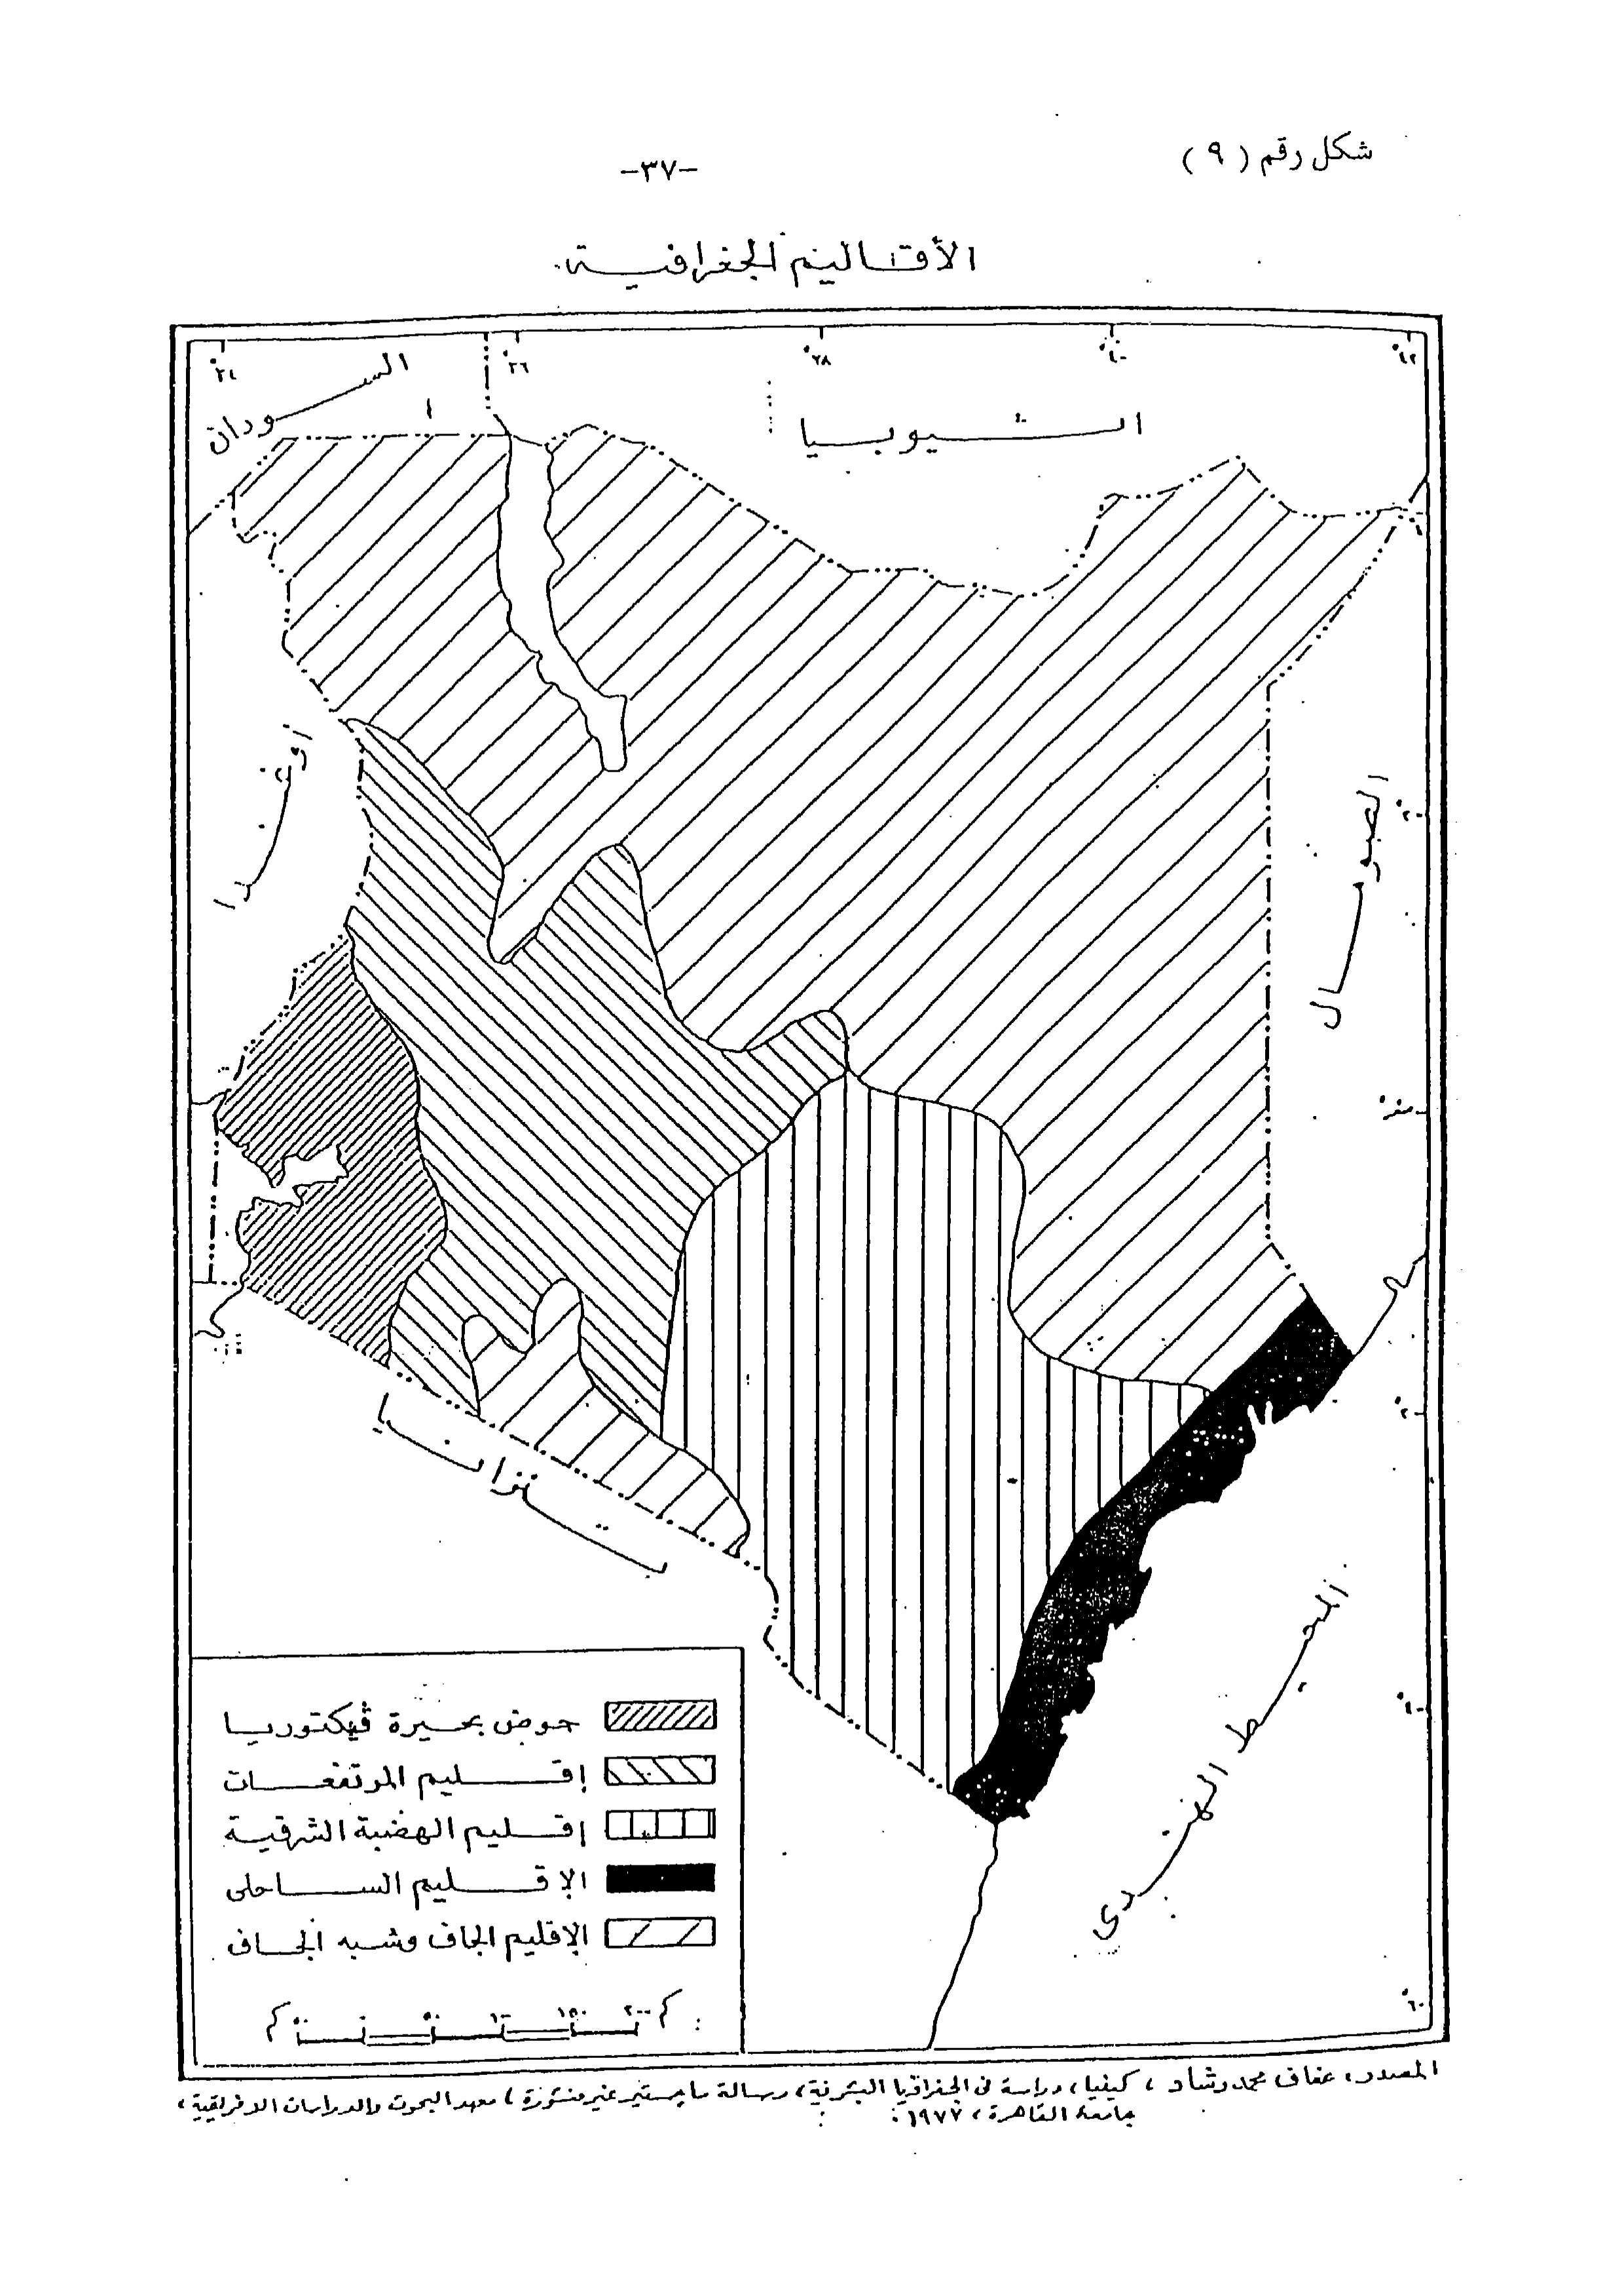 شكل رقم ( ٩ )
-٣٧-
الأقاليم الجغرافية
٣٤° ٣٦° ٣٨° ٤٠° ٤٢°
السودان
اثيوبيا
أوغندا
الصومال
٢°
صفر°
٢°
تنزانيا
المحيط الهندى
٤°
حوض بحيرة ڤيكتوريا
إقليم المرتفعات
إقليم الهضبة الشرقية
الإقليم الساحلى
الإقليم الجاف وشبه الجاف
كم ٢٠٠ ١٥٠ ١٠٠ ٥٠ ٠ كم
٦°
المصدر، عفاف محمد رشاد ، كينيا، دراسة فى الجغرافيا البشرية، رسالة ماجستير غير منشورة، معهد البحوث والدراسات الافريقية،
جامعة القاهرة، ١٩٧٧ .